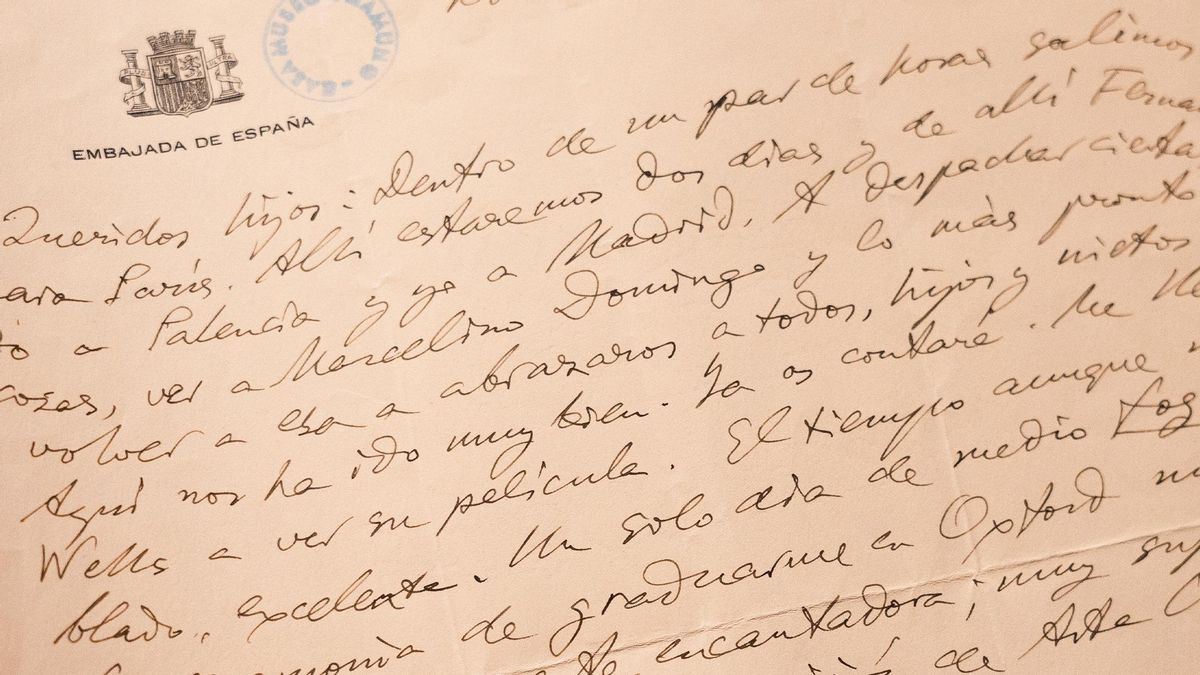 CASA MUSEO UNAMUNO
EMBAJADA DE ESPAÑA
Queridos hijos: Dentro de un par de horas salimos
para París. Allí estaremos dos días y de allí Fernan
a Palencia y yo a Madrid. A despachar cierta
cosas, ver a Marcelino Domingo y lo más pronto
volver a esa a abrazaros a todos, hijos y nietos
Aquí nos ha ido muy bien. Ya os contaré. Me
Wells a ver su película. El tiempo aunque
blado, excelente. Un solo día de medio
de graduarme en Oxford
encantadora; muy
de Arte